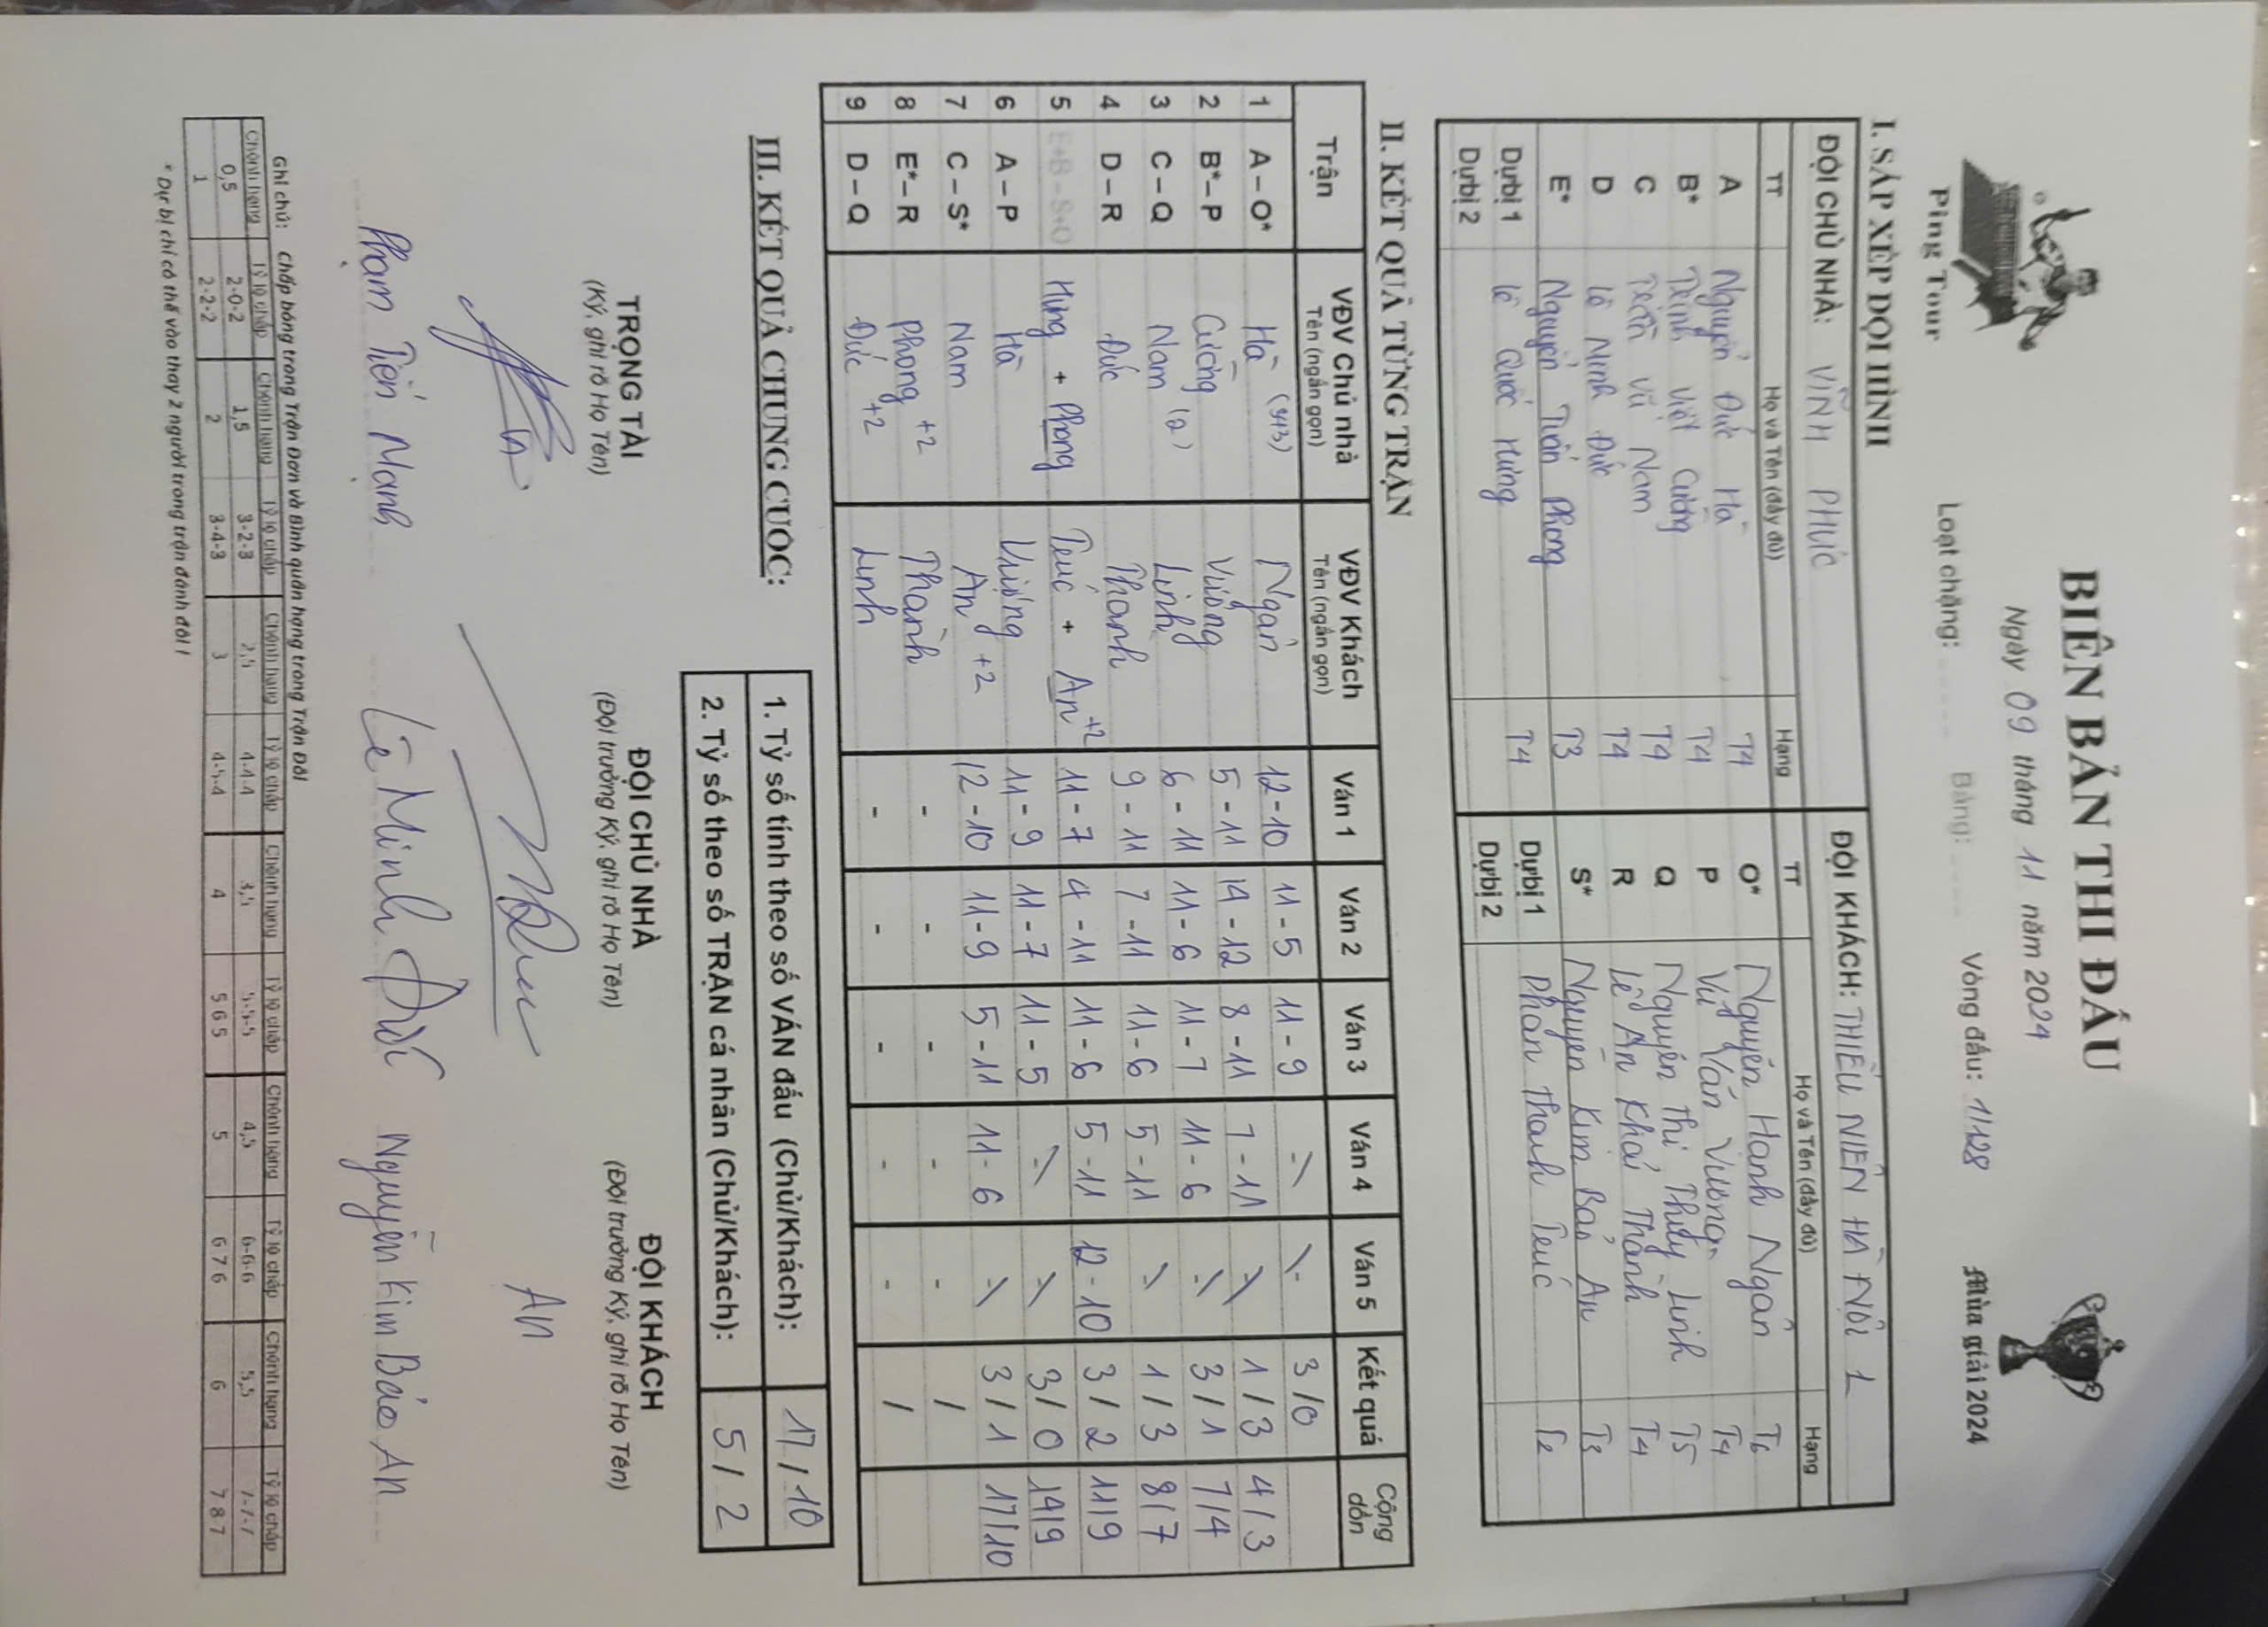 BIÊN BẢN THI ĐẤU
Ping Tour
Ngày 09 tháng 11 năm 2024
Mùa giải 2024
Loạt chặng: Bảng: Vòng đấu: 1/128
I. SẮP XẾP ĐỘI HÌNH
ĐỘI CHỦ NHÀ: VĨNH PHÚC ĐỘI KHÁCH: THIẾU NIÊN HÀ NỘI 1
TT Họ và Tên (đầy đủ) Hạng TT Họ và Tên (đầy đủ) Hạng
A Nguyễn Đức Hà T4 O* Nguyễn Hạnh Ngân T6
B* Trịnh Việt Cường T4 P Vũ Văn Vương T4
C Trần Vũ Nam T4 Q Nguyễn Thị Thùy Linh T5
D Lê Minh Đức T4 R Lê An Khải Thành T4
E* Nguyễn Tuấn Phong T3 S* Nguyễn Kim Bảo An T3
Dự bị 1 Lê Quốc Hưng T4 Dự bị 1 Phan Thanh Trúc T2
Dự bị 2 Dự bị 2
II. KẾT QUẢ TỪNG TRẬN
Trận VĐV Chủ nhà Tên (ngắn gọn) VĐV Khách Tên (ngắn gọn) Ván 1 Ván 2 Ván 3 Ván 4 Ván 5 Kết quả Cộng dồn
1 A – O* Hà (343) Ngân 12-10 11-5 11-9 - - 3/0
2 B* – P Cường Vương 5-11 14-12 8-11 7-11 1/3 4/3
3 C – Q Nam (2) Linh 6-11 11-6 11-7 11-6 3/1 7/4
4 D – R Đức Thành 9-11 7-11 11-6 5-11 1/3 8/7
5 E+B - S+O Hưng + Phong Trúc + An +2 11-7 4-11 11-6 5-11 12-10 3/2 11/9
6 A – P Hà Vương 11-9 11-7 11-5 3/0 14/9
7 C – S* Nam An +2 12-10 11-9 5-11 11-6 3/1 17/10
8 E* – R Phong +2 Thành - - - - - /
9 D – Q Đức +2 Linh - - - - - /
III. KẾT QUẢ CHUNG CUỘC:
1. Tỷ số tính theo số VÁN đấu (Chủ/Khách): 17/10
2. Tỷ số theo số TRẬN cá nhân (Chủ/Khách): 5/2
TRỌNG TÀI ĐỘI CHỦ NHÀ ĐỘI KHÁCH
(Ký, ghi rõ Họ Tên) (Đội trưởng Ký, ghi rõ Họ Tên) (Đội trưởng Ký, ghi rõ Họ Tên)
An
Phạm Tiến Mạnh Lê Minh Đức Nguyễn Kim Bảo An
Ghi chú: Chấp bóng trong Trận Đơn và Bình quân hạng trong Trận Đôi
Chênh hạng Tỷ lệ chấp Chênh hạng Tỷ lệ chấp Chênh hạng Tỷ lệ chấp Chênh hạng Tỷ lệ chấp Chênh hạng Tỷ lệ chấp Chênh hạng Tỷ lệ chấp
0,5 2-0-2 1,5 3-2-3 2,5 4-4-4 3,5 5-5-5 4,5 6-6-6 5,5 7-7-7
1 2-2-2 2 3-4-3 3 4-5-4 4 5 6 5 5 6 7 6 6 7 8 7
* Dự bị chỉ có thể vào thay 2 người trong trận đánh đôi !